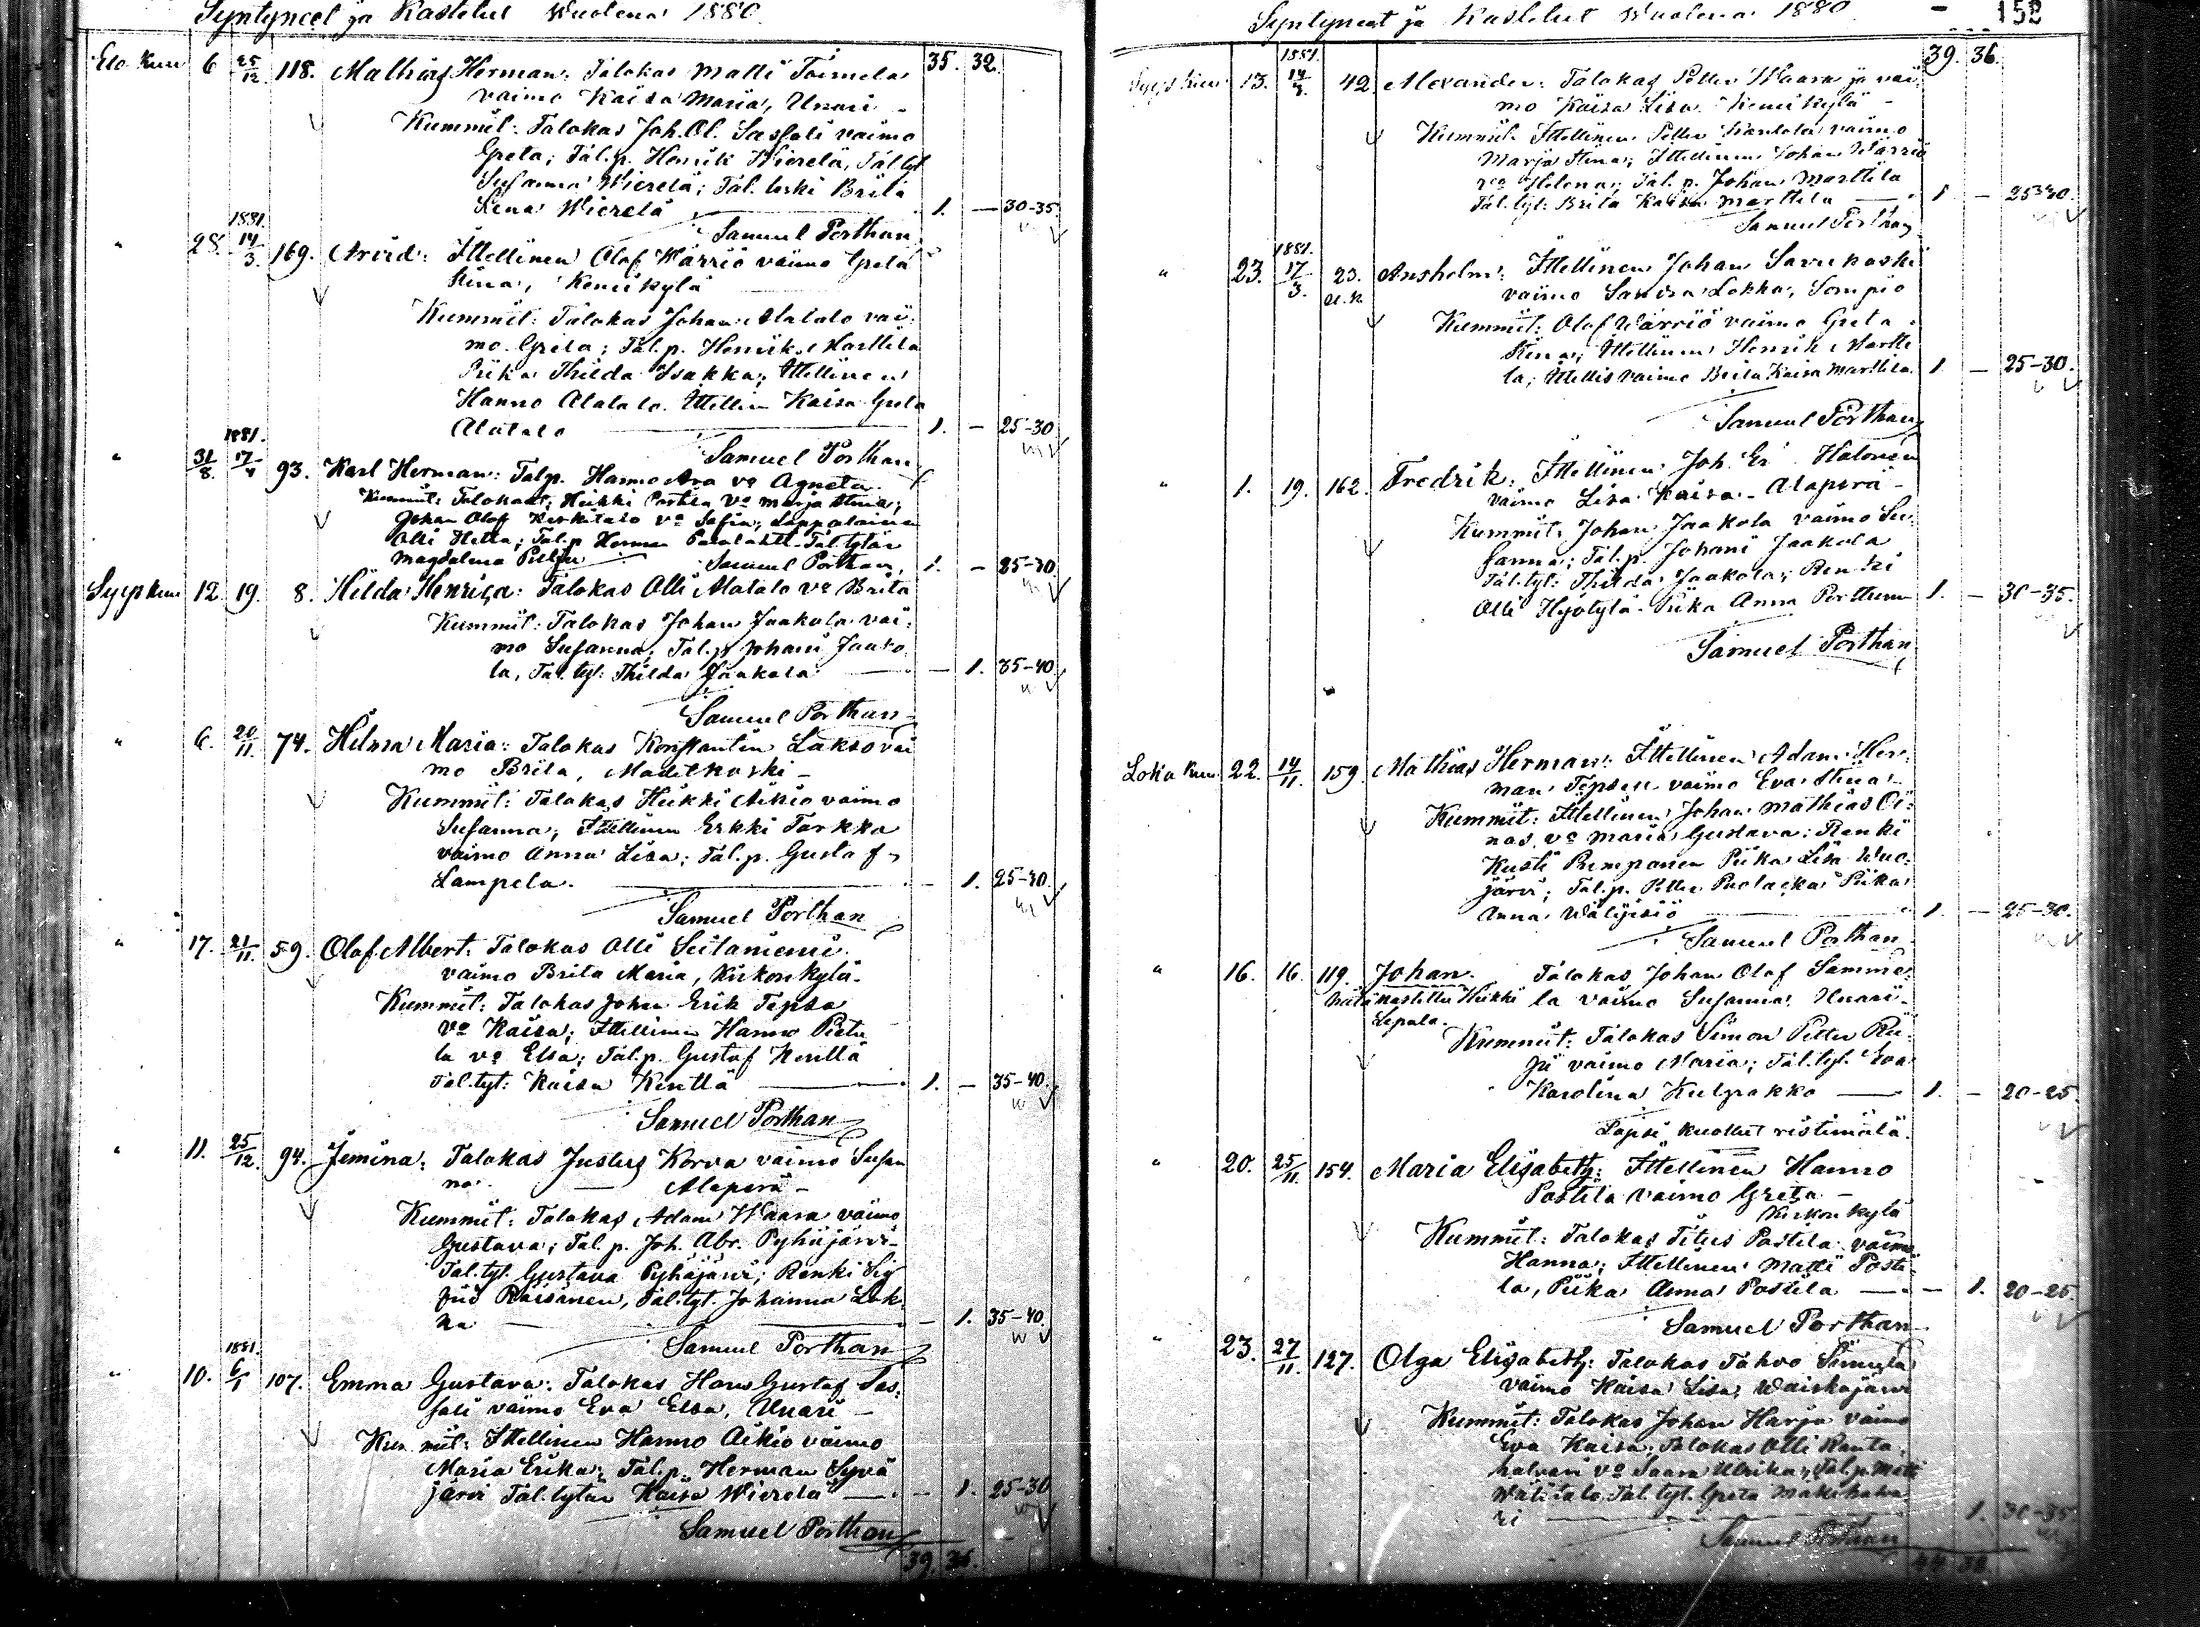 Syntyneet ja Kastetut Wuotena 1880.
35. 32.
Elo Kuu 6 25/12 118. Mathias Herman: Talokas Matti Toimela
vaimo Kaisa Maria, Unari -
Kummit: Talokas Joh. Ol. Sassali vaimo
Greta; Tal.p. Henrik Wierelä, Tal.tyt
Susanna Wierelä; Tal. leski Brita
Lena Wierelä 1. — 30-35
Samuel Porthan
" 28. 1881. 14/3. 169. Arvid: Itellinen Olaf Wärriö vaimo Greta
Stina, Kemikylä
Kummit: Talokas Johan Alatalo vai-
mo Greta; Tal.p. Henrik Marttila
Piika Thilda Isakka; Itellinen
Hanno Alatalo. Itellin Kaisa Greta
Alatalo 1. — 25-30
Samuel Porthan
" 31/8. 1881. 17/4 93. Karl Herman: Talp. Hanno Ara vo Agneta.
Kummit: Talokas Heikki Postila Vo Marja Stina;
Johan Olof Kerkitalo vo Sofia; Lappalainen
Olli Hetta; Tal.p Herman Tal.tytär
Magdalena
Samuel Porthan, 1. — 25-30
Syys kuu 12 19. 8. Hilda Henrica: Talokas Olli Alatalo vo Brita
Kummit: Talokas Johan Jaakola vai-
mo Susanna; Tal.p Johani Jaako
la, Tal.tyt: Thilda Jaakola — 1. 35-40
Samuel Porthan
" 6. 20/11 74. Hilma Maria: Talokas Konstantin Lakso vai
mo Brita, Madetkoski -
Kummit: Talokas Heikki Aikio vaimo
Susanna; Itellinen Erkki Tarkka
vaimo Anna Lisa; Tal.p. Gustaf
Lampela. — 1. 25-30.
Samuel Porthan
" 17. 21/11. 59. Olaf Albert: Talokas Olli Seitaniemi
vaimo Brita Maria, Kirkonkylä-
Kummit: Talokas Johan Erik Tepsa
vo Kaisa; Itellinen Hanno Pietu
la vo Elsa; Tal.p. Gustaf Kenttä
Tal.tyt: Kaisa Kenttä 1. — 35-40.
Samuel Porthan
" 11. 25/12. 94. Jemina: Talokas Justus Korva vaimo Susan
na. Alaperä -
Kummit: Talokas Adam Waara vaimo
Gustava; Tal.p. Joh. Abr. Pyhäjärvi-
Tal.tyt. Gustava Pyhäjärvi; Renki Sig
frid Räisänen, Tal.tyt. Johanna Lok-
ka — 1. 35-40.
Samuel Porthan
" 10. 1881. 6/1 107. Emma Gustava: Talokas Hans Gustaf Sas-
sali vaimo Eva Elsa, Unari -
Kummit: Itellinen Hanno Aikio vaimo
Maria Erika; Tal.p. Herman Syvä
järvi Tal.tytär Kaisa Wierelä — 1. 25-30
Samuel Porthan
39. 36.
Syntyneet ja Kastetut Wuotena 1880. - 152
39. 36.
Syys kuu 13. 1881. 42 Alexander: Talokas Petter Waara ja vai-
mo Kaisa Lisa. Kemikylä -
Kummit: Itellinen Petter vaimo
Marja Stina; Itellinen Johan Wärriö
vo Helena; Tal.p. Johan Marttila
Tal.tyt: Brita Kaisa Marttila 1 — 25-30.
Samuel Porthan
" 23. 1881. 17/3. 23. Ansholm: Itellinen Johan Savukoski
vaimo Sandra Lokka, Sompio
Kummit: Olof Wärriö vaimo Greta
Stina; Itellinen Henrik Martti
la; Itellis vaimo Brita Kaisa Marttila. 1 — 25-30.
Samuel Porthan
" 1. 19. 162. Fredrik: Itellinen Joh. Er. Halonen
vaimo Lisa Kaisa - Alaperä -
Kummit: Johan Jaakola vaimo Su-
sanna; Tal.p. Johani Jaakola
Tal.tyt: Thilda Jaakola; Renki
Olli Hyötylä. Piika Anna Porttunen 1. — 30-35.
Samuel Porthan
Loka kuu 22. 14/11. 159. Mathias Herman: Itellinen Adam Her-
man Tepsen vaimo Eva Stina
Kummit: Itellinen Johan Mathias Oi-
nas vo Maria Gustava; Renki
Kusti Rempanen Piika Lisa Wuo-
järvi; Tal.p. Petter Piika
Anna Wälijisiö 1. — 25-30.
Samuel Porthan
" 16. 16. 119. Johan. Talokas Johan Olof Samme-
Hätä Kastettu Heikki la vaimo Susanna. Unari-
Lepala.
Kummit: Talokas Simon Petter Rii-
pi vaimo Maria; Tal.tyt. Eva
Karolina Kulpakko 1. — 20-25.
Lapsi kuollut ristimätä.
" 20. 25/11. 154. Maria Elisabeth: Itellinen Hanno
Postila vaimo Greta -
Kirkonkylä
Kummit: Talokas Titus Postila vaimo
Hanna; Itellinen Matti Posti-
la, Piika Anna Postila — 1. 20-25.
Samuel Porthan
" 23. 27/11. 127. Olga Elisabeth: Talokas Tahvo Simula
vaimo Kaisa Lisa, Waiskojärvi
Kummit: Talokas Johan Harja vaimo
Eva Kaisa; Talokas Olli Ranta-
halvari vo Saara Ulrika; Tal.p. Matti
Wälitalo, Tal.tyt. Greta
ri 1. 30-35
Samuel Porthan